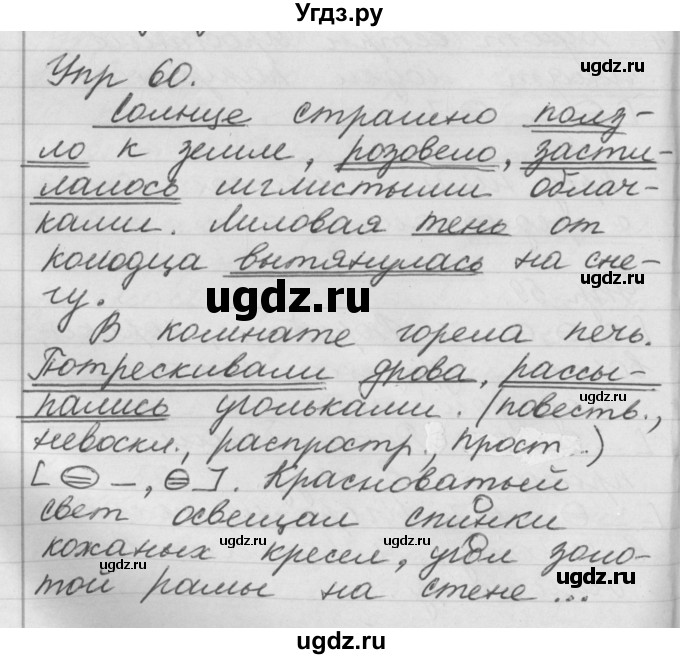 Угдз.ру
Упр 60.
Солнце страшно полз-
ло к земле, розовело, засти-
лалось мглистыми облач-
ками. Лиловая тень от
колодца вытянулась на сне-
гу.
В комнате горела печь.
Потрескивали дрова, рассы-
пались угольками. (повеств.,
невоскл., распростр., прост..)
[ –, ]. Красноватый
свет освещал спинки
кожаных кресел, угол золо-
той рамы на стене ...
ugdz.ru
ugdz.ru
ugdz.ru
ugdz.ru
ugdz.ru
ugdz.ru
ugdz.ru
ugdz.ru